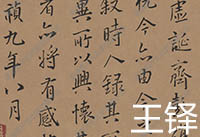 虛誕齊彭
視今亦由今
敘時人錄其
異所以興懷其
者亦將有感
禎九年八月
王铎